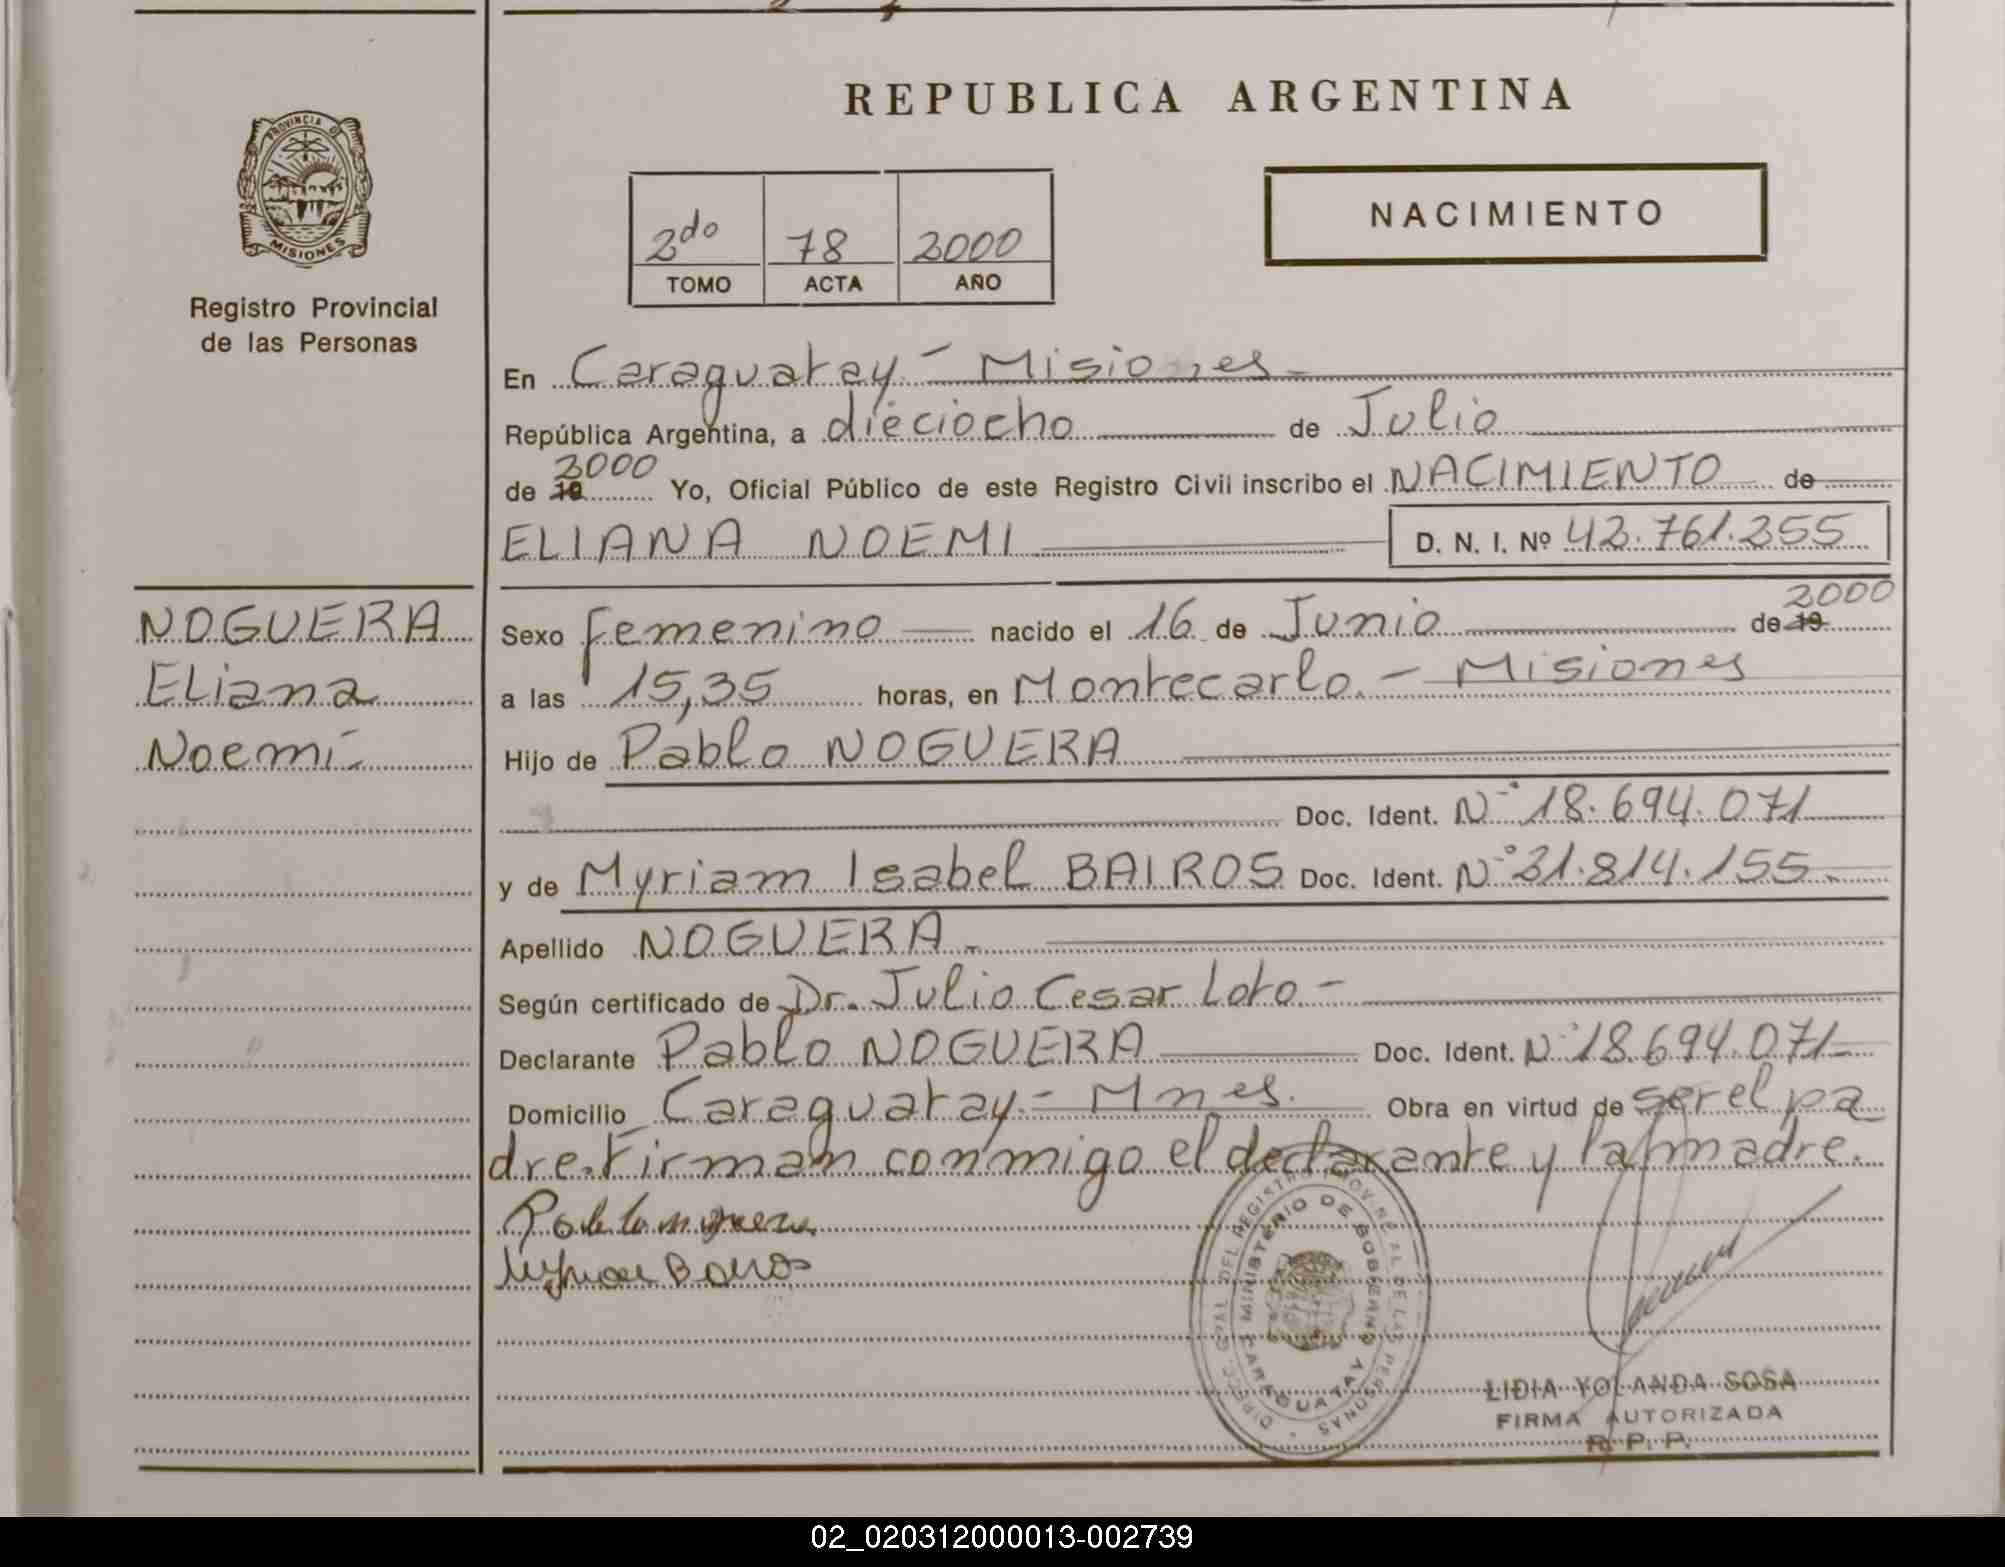 PROVINCIA D
MISIONES
Registro Provincial
de las Personas
REPUBLICA ARGENTINA
2do 78 2000
TOMO ACTA AÑO
NACIMIENTO
En Caraguatay - Misiones -
República Argentina, a dieciocho de Julio
2000
de 19 Yo, Oficial Público de este Registro Civil inscribo el NACIMIENTO de
ELIANA NOEMI D. N. I. Nº 42.761.255
NOGUERA
Eliana
Noemí-
2000
Sexo femenino nacido el 16 de Junio de 19
a las 15,35 horas, en Montecarlo - Misiones
Hijo de Pablo NOGUERA
Doc. Ident. Nº 18.694.071
y de Myriam Isabel BAIROS Doc. Ident. Nº 31.814.155.
Apellido NOGUERA.
Según certificado de Dr. Julio Cesar Loto -
Declarante Pablo NOGUERA Doc. Ident. Nº 18.694.071
Domicilio Caraguatay - Mnes. Obra en virtud de ser el pa
dre. Firman conmigo el declarante y la madre.
DIRECC. GRAL. DEL REGISTRO PROVINCIAL DE LAS PERSONAS
MINISTERIO DE GOBIERNO
CARAGUATAY
LIDIA YOLANDA SOSA
FIRMA AUTORIZADA
R. P. P.
02_020312000013-002739